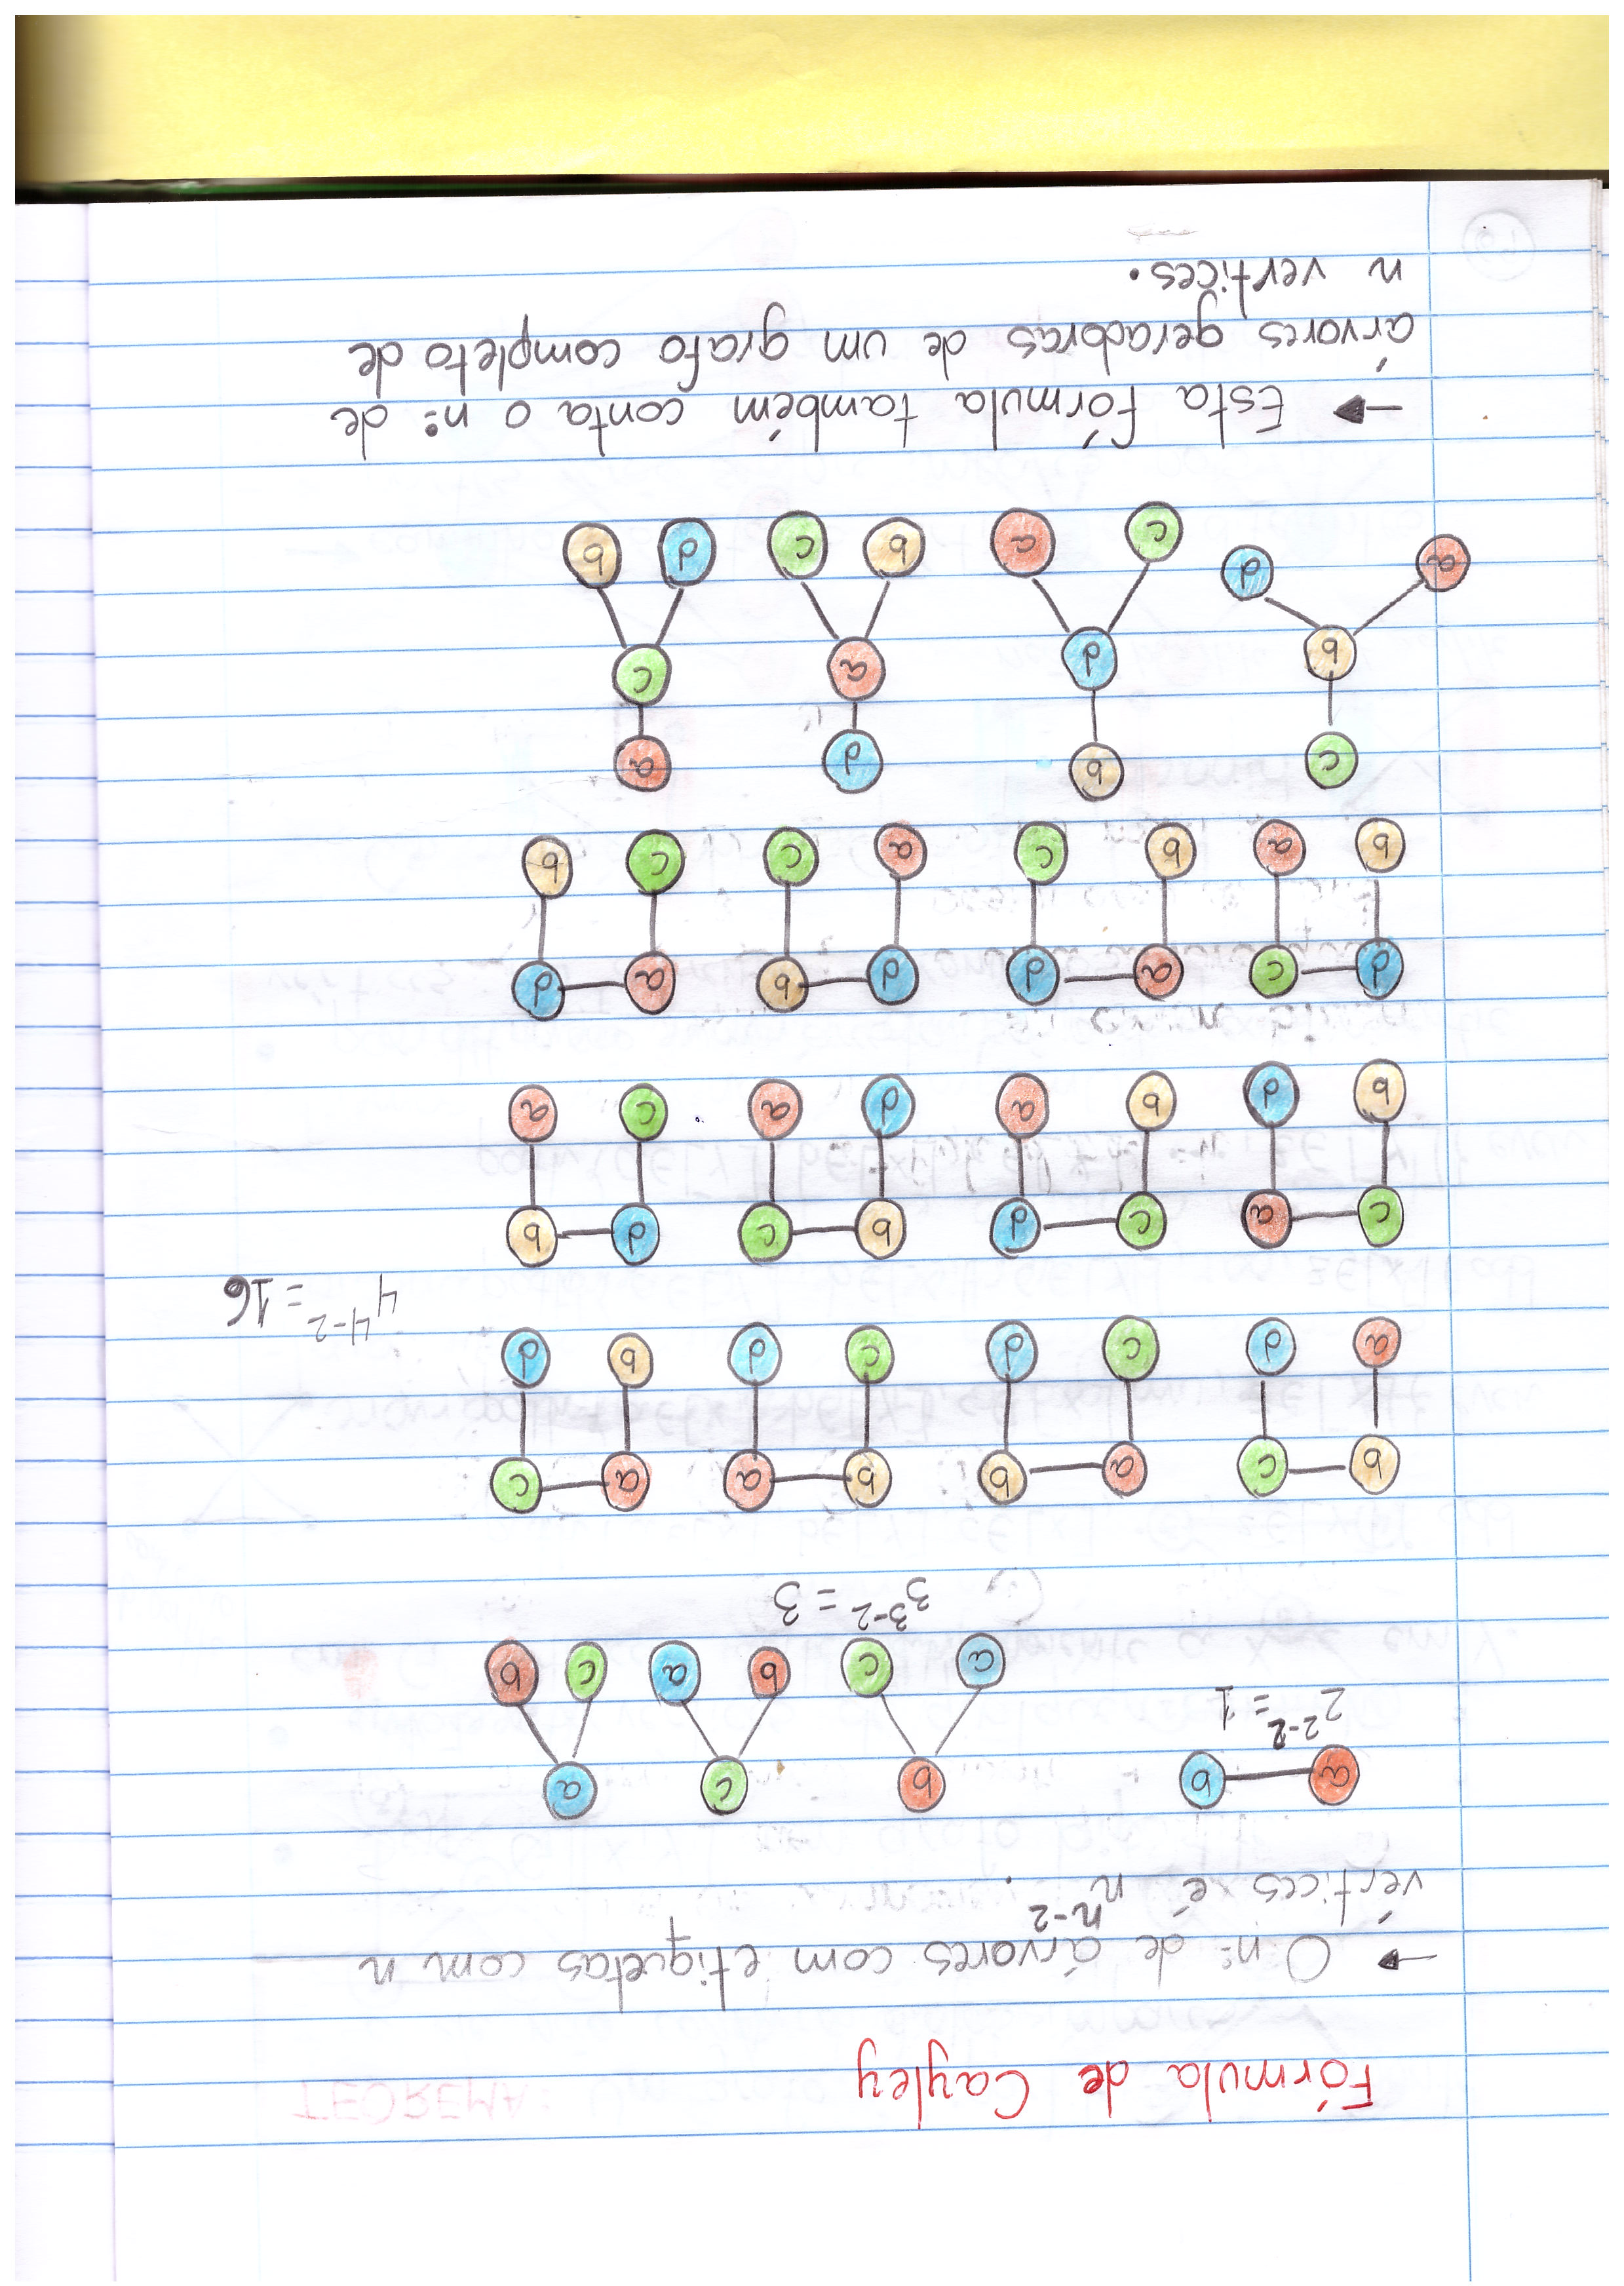 Fórmula de Cayley
→ O nº de árvores com etiquetas com n
vértices é n^{n-2}.
a b
b c a
a c b a c b
2^{2-2} = 1
3^{3-2} = 3
b c a b b a a c
a d c d c d b d
4^{4-2} = 16
c a c d b c d b
b d b a d a c a
d c a d d b a d
b a b c a c c b
c b d a
b d a c
a d c a b c d b
→ Esta fórmula também conta o nº de
árvores geradoras de um grafo completo de
n vertices.